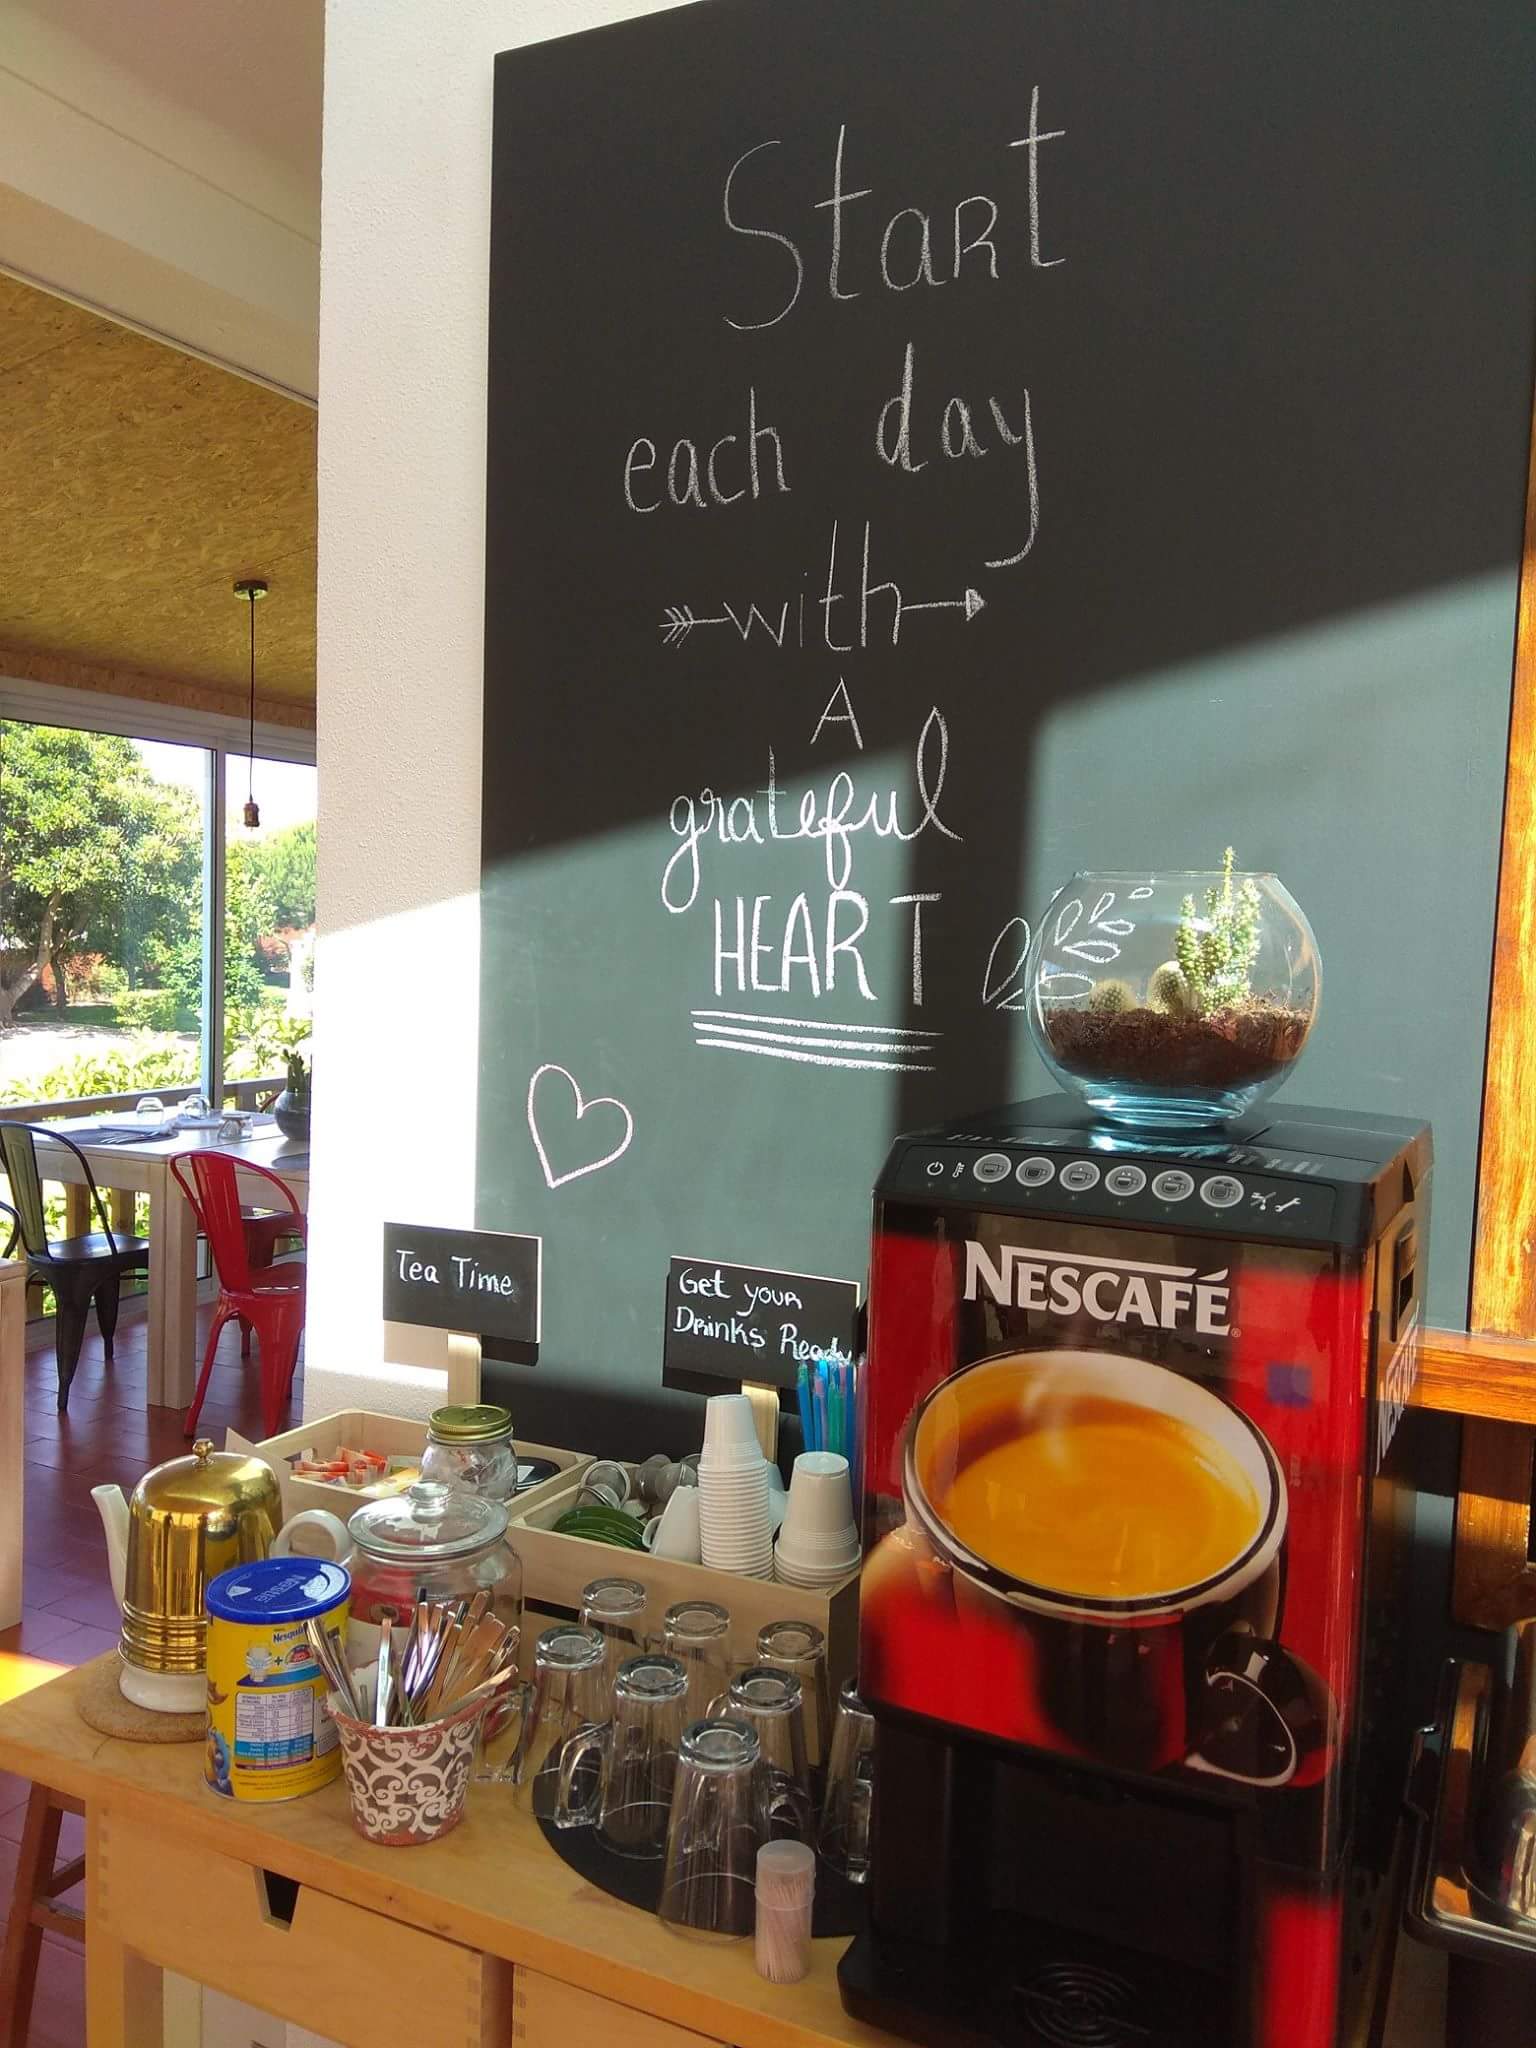 Start
each day
with
A
grateful
HEART
Tea Time
Get your
Drinks Ready
NESCAFÉ
Nestlé
Nesquik